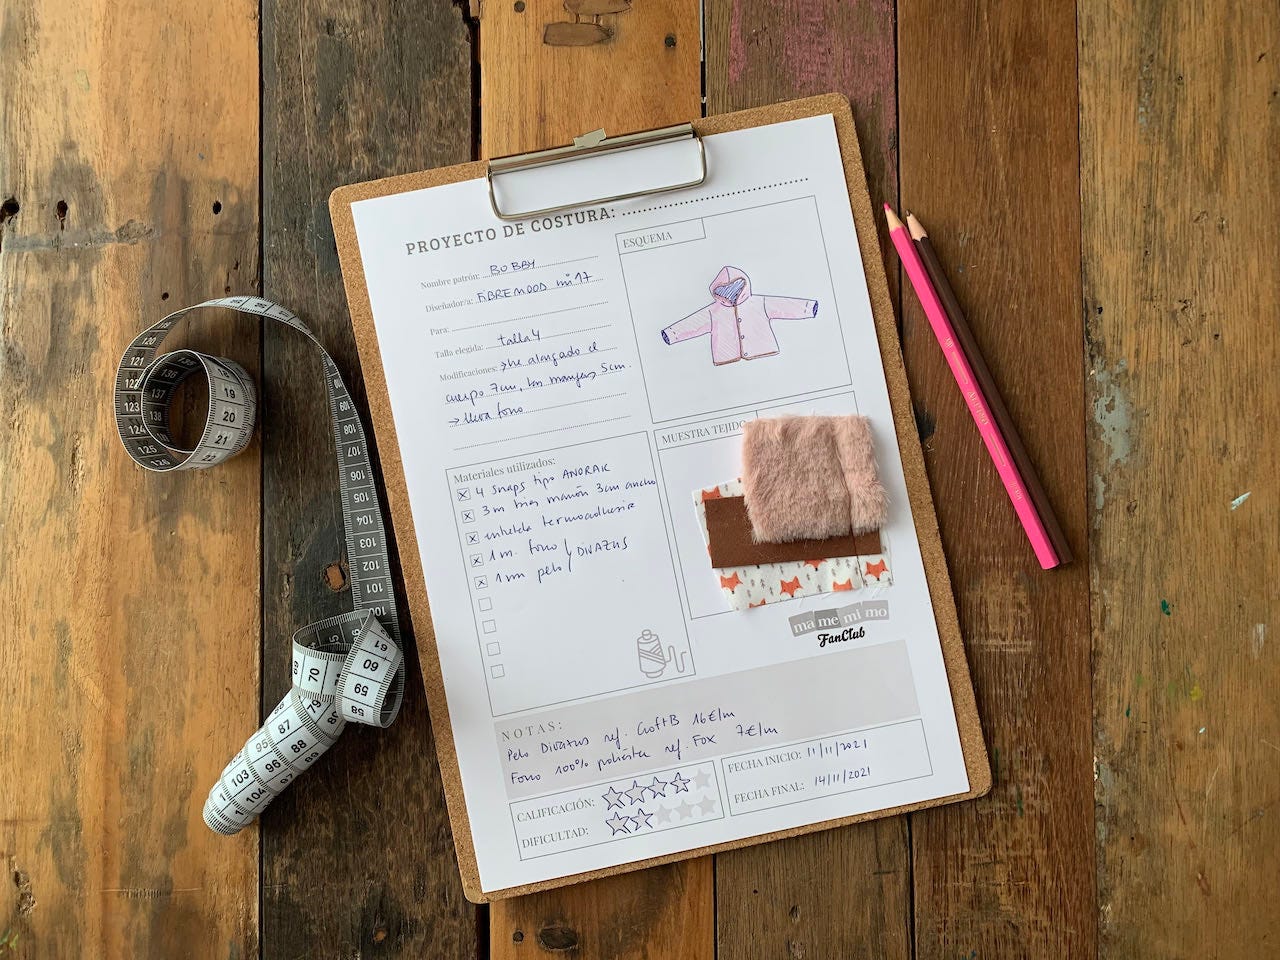 PROYECTO DE COSTURA:
Nombre patrón: BOBBY
Diseñador/a: FIBREMOOD nº 17
Para:
Talla elegida: talla 4
Modificaciones: → he alargado el
cuerpo 7cm, las mangas 5cm.
→ lleva forro
ESQUEMA
MUESTRA TEJIDO
Materiales utilizados:
4 snaps tipo ANORAK
3m bies marrón 3cm ancho
entretela termoadhesiva
1 m. forro / DIVAZUS
1 m pelo
ma me mi mo
FanClub
NOTAS:
Pelo DIVAZUS ref. CroftB 16€/m
Forro 100% poliéster ref. FOX 7€/m
CALIFICACIÓN:
DIFICULTAD:
FECHA INICIO: 11/11/2021
FECHA FINAL: 14/11/2021
121
123
125
126
137
138
18
19
20
21
109
108
107
106
105
104
103
102
101
100
70
61
60
59
58
79
87
88
95
96
103
104